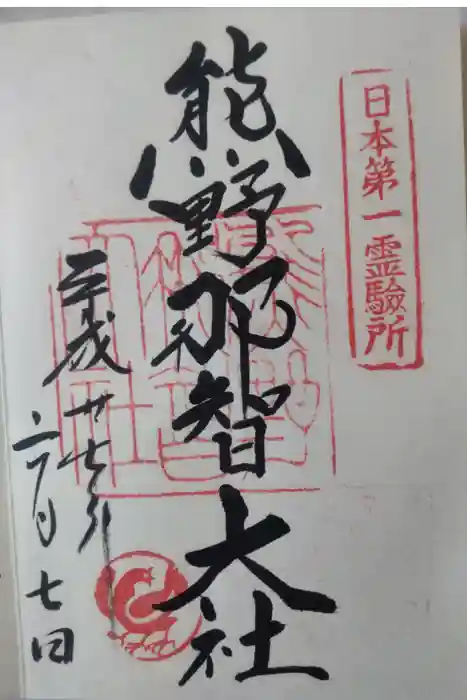 日本第一霊驗所
熊野那智大社
平成廿七年
七日